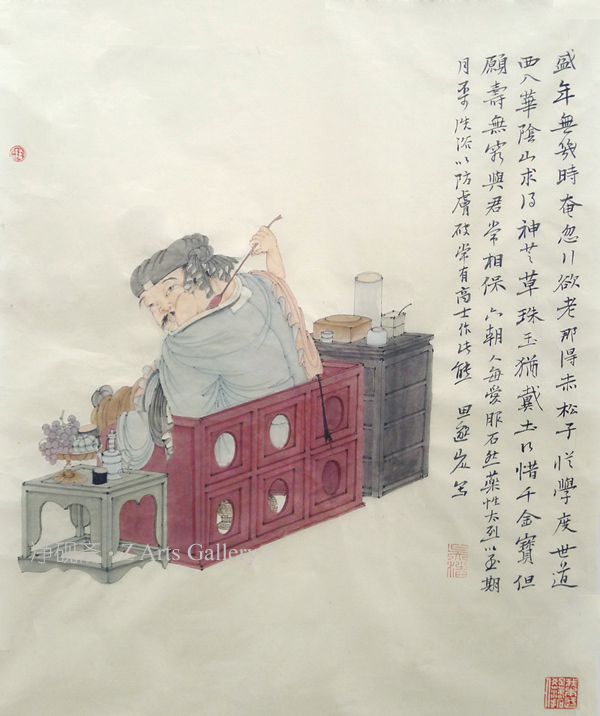 盛年無幾時奄忽行欲老那得赤松子從學度世道
西入華陰山求得神芝草珠玉猶戴土何惜千金寶但
願壽無窮與君常相保六朝人每愛服石然藥性太烈以至期
月不洗浴以防膚破常有高士作此態
净砚斋·Z Arts Gallery